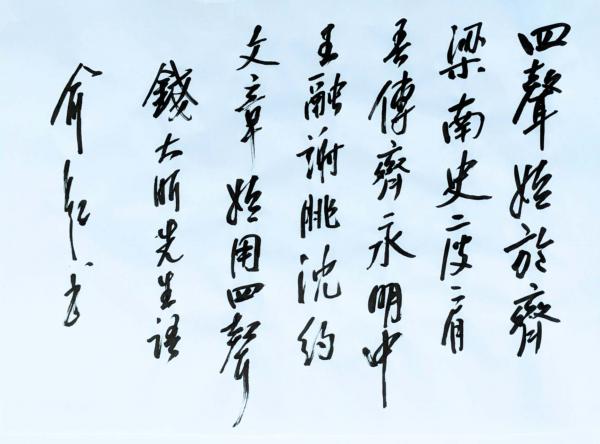 四聲始於齊
梁南史庾肩
吾傳齊永明中
王融謝朓沈約
文章始用四聲
錢大昕先生語
俞书